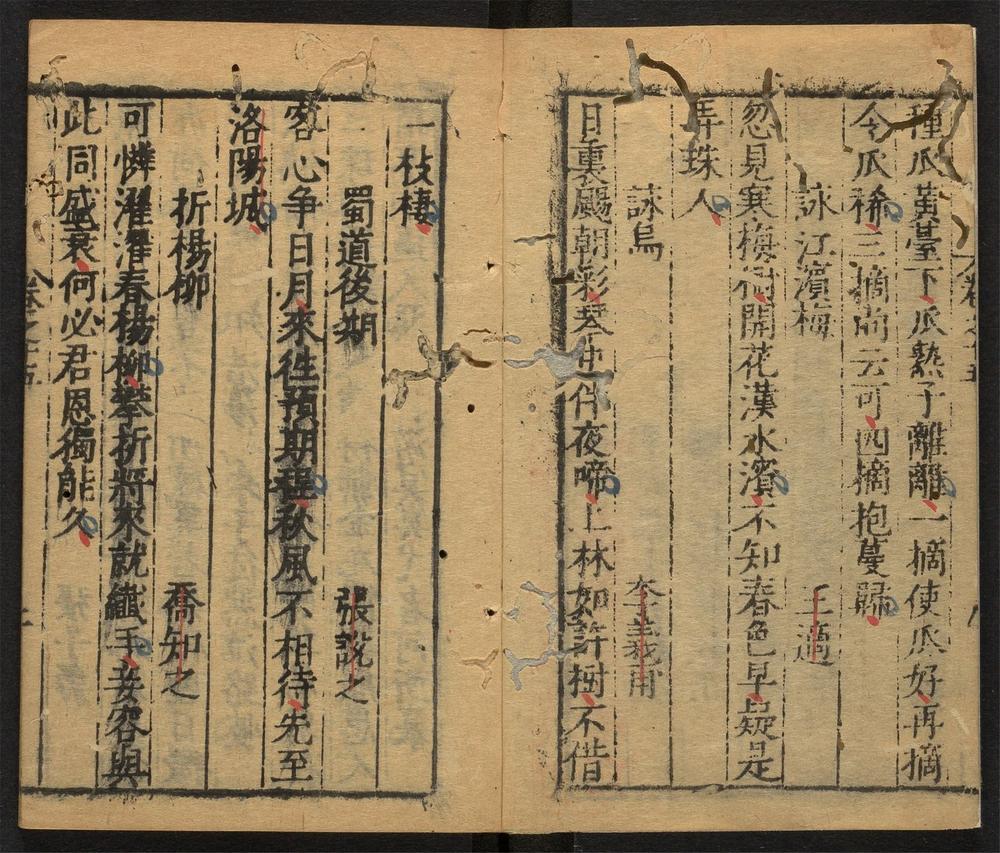 種瓜黃臺下瓜熟子離離一摘使瓜好再摘
令瓜稀三摘尚云可四摘抱蔓歸
詠江濱梅 王適
忽見寒梅樹開花漢水濱不知春色早疑是
弄珠人
詠烏 李義府
日裏颺朝彩琴中伴夜啼上林如許樹不借
一枝棲
蜀道後期 張說之
客心争日月來徃預期程秋風不相待先至
洛陽城
折楊柳 喬知之
可憐濯濯春楊柳攀折將來就纖手妾容與
此同盛衰何必君恩獨能久